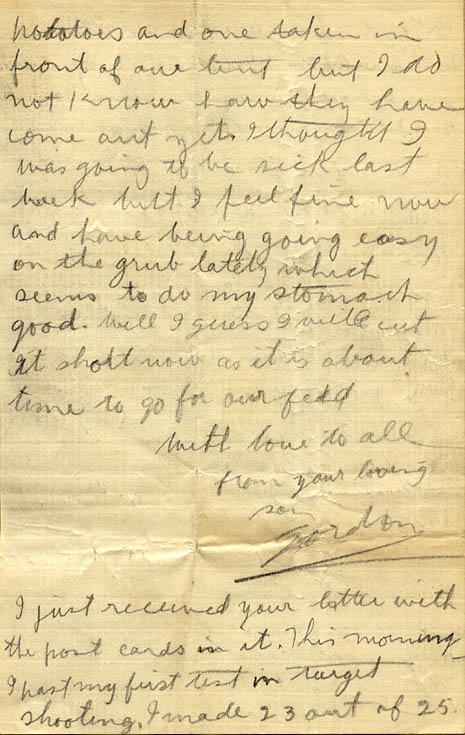 potatoes and one taken in
front of our tent but I do
not know how they have
come out yet. I thought I
was going to be sick last
week but I feel fine now
and have being going easy
on the grub lately which
seems to do my stomach
good. Well I guess I will cut
it short now as it is about
time to go for our feed
With love to all
from your loving
son
Gordon
I just received your letter with
the post cards in it. This morning
I past my first test in target
shooting. I made 23 out of 25.